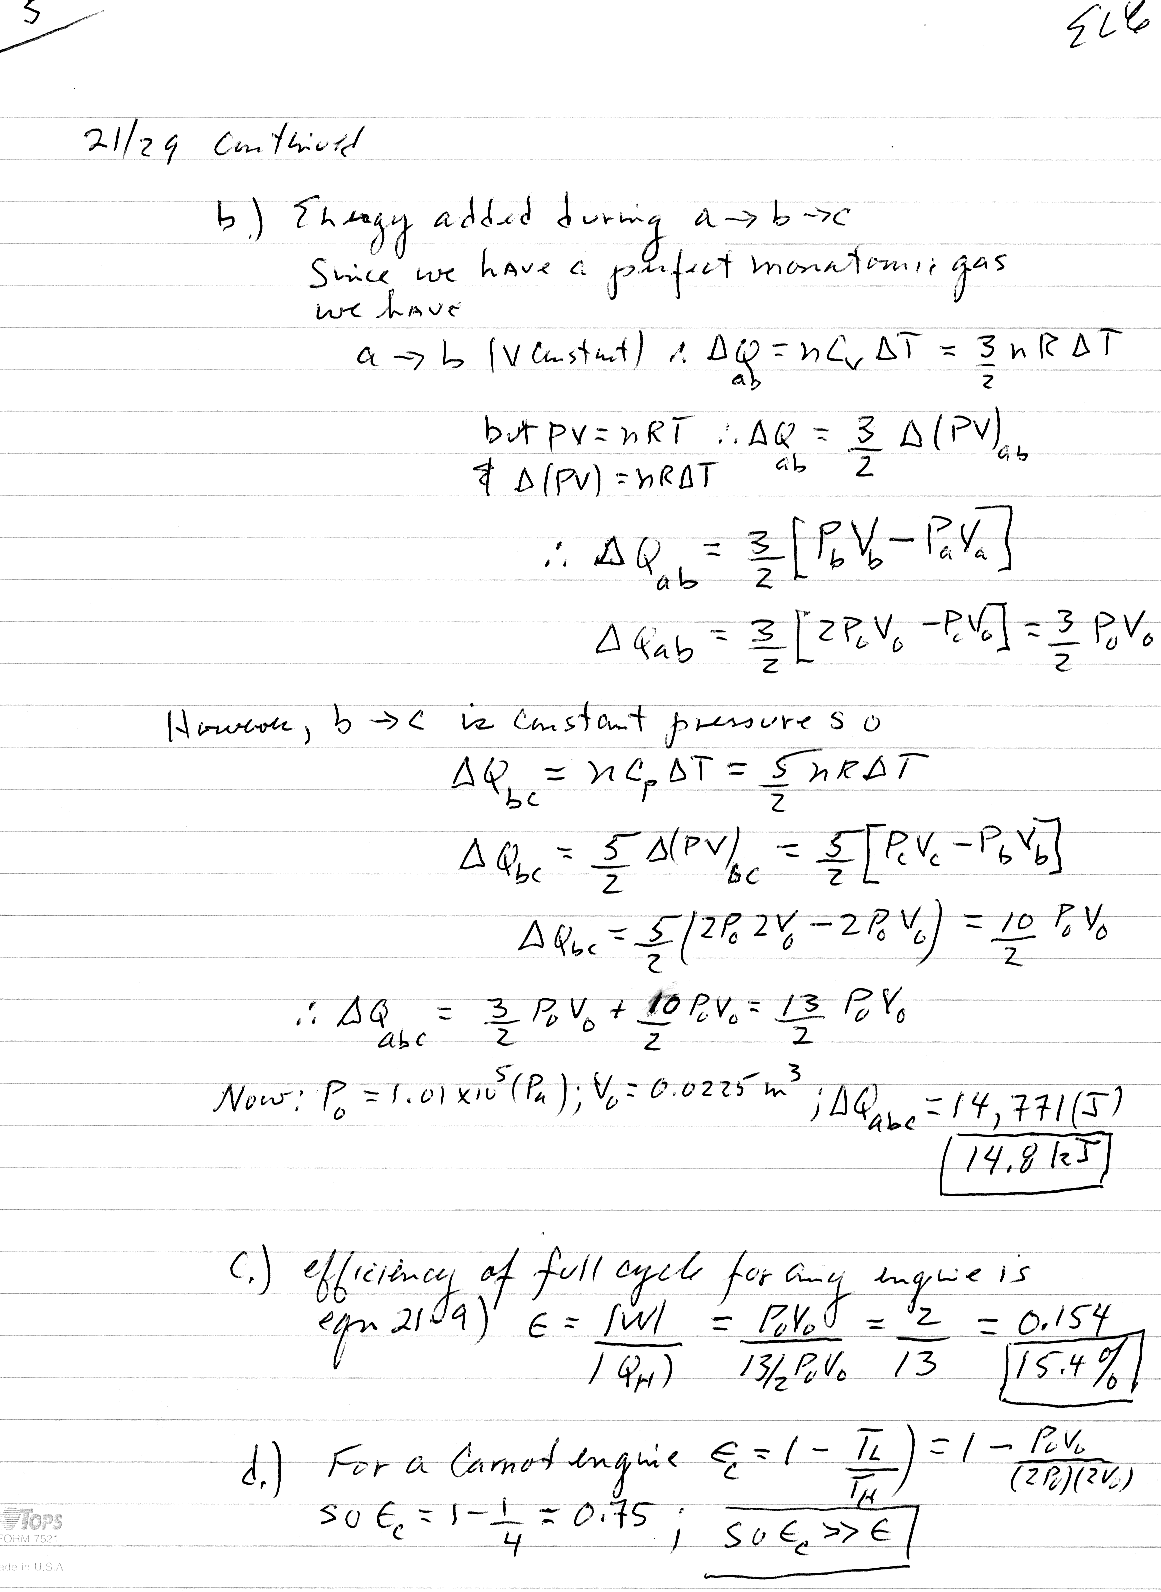 5
21/29 Continued
b.) Energy added during a → b → c
Since we have a perfect monatomic gas
we have
a → b (V Constant) ∴ ΔQ_ab = nC_v ΔT = 3/2 nRΔT
but PV = nRT ∴ ΔQ_ab = 3/2 Δ(PV)_ab
& Δ(PV) = nRΔT
∴ ΔQ_ab = 3/2 [P_b V_b - P_a V_a]
ΔQ_ab = 3/2 [2P₀V₀ - P₀V₀] = 3/2 P₀V₀
However, b → c is constant pressure so
ΔQ_bc = nC_p ΔT = 5/2 nRΔT
ΔQ_bc = 5/2 Δ(PV)_bc = 5/2 [P_c V_c - P_b V_b]
ΔQ_bc = 5/2 (2P₀ 2V₀ - 2P₀V₀) = 10/2 P₀V₀
∴ ΔQ_abc = 3/2 P₀V₀ + 10/2 P₀V₀ = 13/2 P₀V₀
Now: P₀ = 1.01 x10⁵ (Pa); V₀ = 0.0225 m³; ΔQ_abc = 14,771 (J)
14.8 kJ
c.) efficiency of full cycle for any engine is
eqn 21-9) ε = |W|/|Q_H| = P₀V₀/(13/2 P₀V₀) = 2/13 = 0.154
15.4%
d.) For a Carnot engine ε_c = 1 - T_L/T_H) = 1 - P₀V₀/(2P₀)(2V₀)
so ε_c = 1 - 1/4 = 0.75; so ε_c >> ε
TOPS
FORM 7521
Made in U.S.A